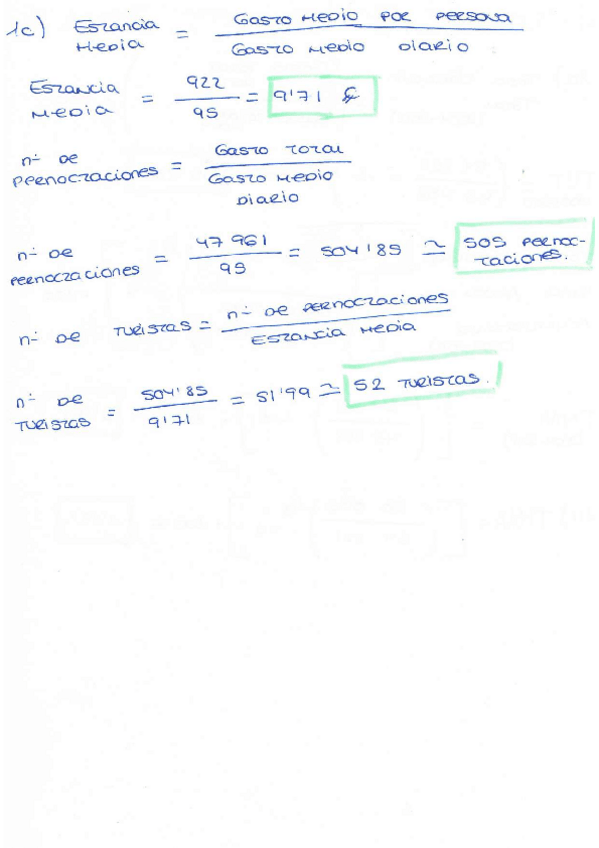 1c) Estancia Media = Gasto medio por persona / Gasto medio diario
Estancia Media = 922 / 95 = 9'71 €
nº de pernoctaciones = Gasto total / Gasto medio diario
nº de pernoctaciones = 47 961 / 95 = 504'85 ≃ 505 pernoc-
taciones.
nº de turistas = nº de pernoctaciones / Estancia media
nº de turistas = 504'85 / 9'71 = 51'99 ≃ 52 turistas.